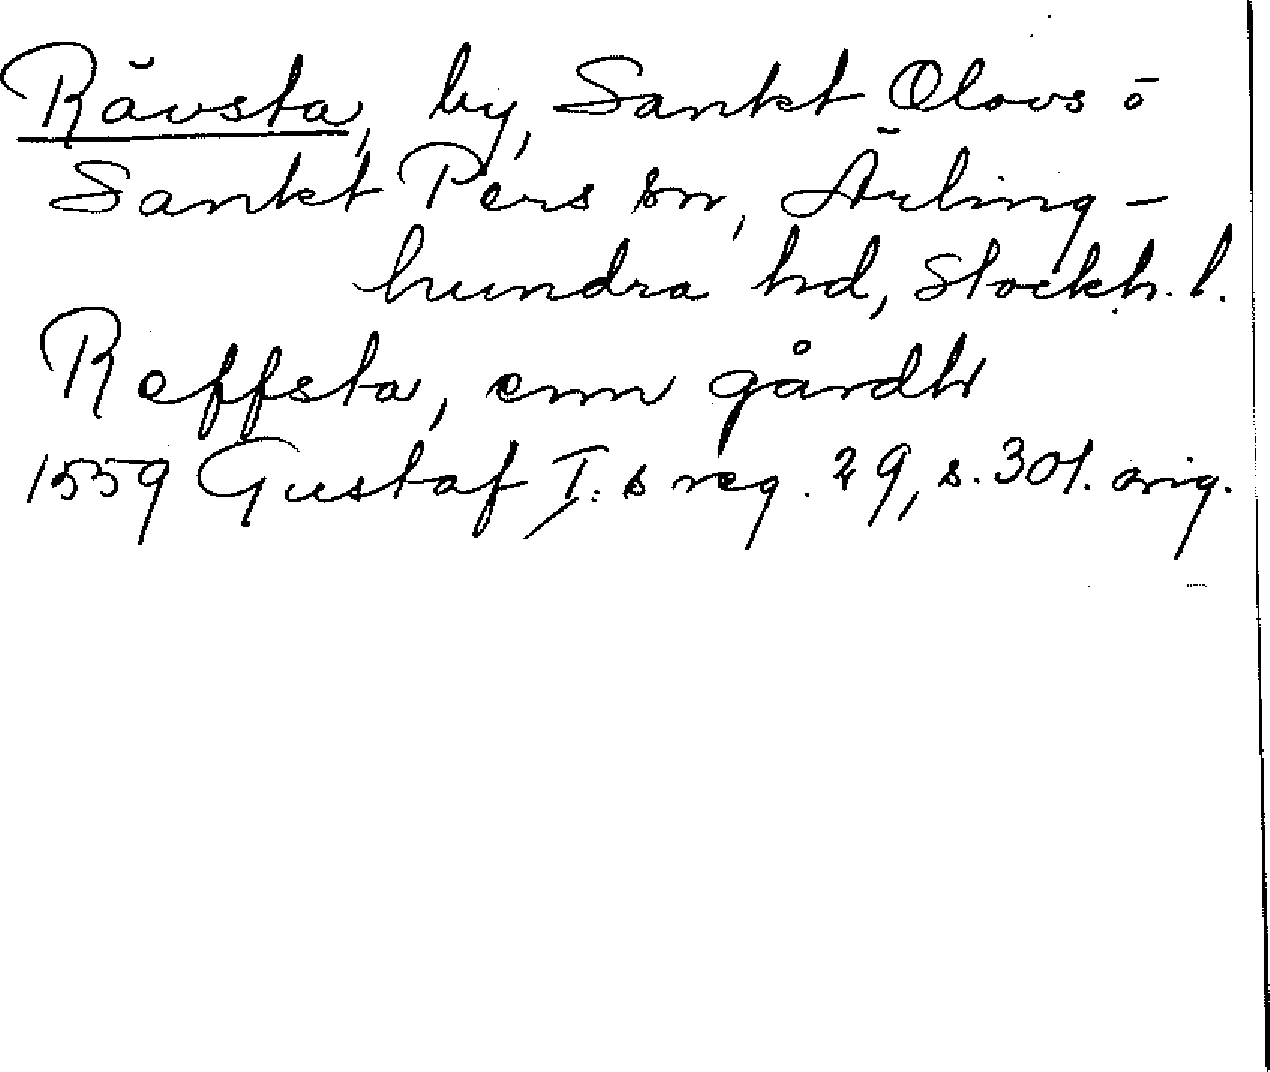 Rävsta, by, Sankt Olovs o
Sankt Pers sn, Ärling-
hundra hd, Stockh. l.
Reffsta, enn gårdh
1559 Gustaf I:s reg. 29, s. 301. orig.